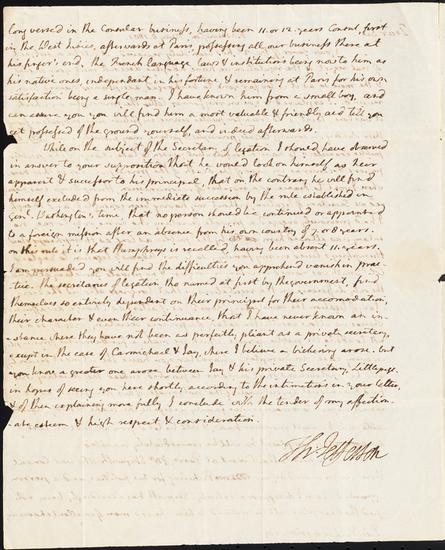 long versed in the Consular business, having been 11. or 12. years Consul, first
in the West Indies, afterwards at Paris, possessing all our business there at
his finger's end, the French language laws & institutions being now to him as
his native ones, independant in his fortune, & remaining at Paris for his own
satisfaction being a single man. I have known him from a small boy, and
can assure you you will find him a most valuable & friendly aid till you
get possessed of the ground yourself, and indeed afterwards.
While on the subject of the Secretary of legation I should have observed
in answer to your supposition that he would look on himself as heir
apparent & successor to his principal, that on the contrary he will find
himself excluded from the immediate succession by the rule established in
Genl. Washington's time, that no person should be continued or appointed
to a foreign mission after an absence from his own country of 7. or 8 years.
on this rule it is that Humphreys is recalled, having been absent 11. years.
I am persuaded you will find the difficulties you apprehend vanish in prac-
-tice. the secretaries of legation tho named at first by the government, find
themselves so entirely dependant on their principal for their accomodation,
their character & even their continuance, that I have never known an in-
-stance where they have not been as perfectly pliant as a private secretary,
except in the case of Carmichael & Jay, where I believe a bickering arose. but
you know a greater one arose between Jay & his private Secretary, Littlepage.
in hopes of seeing you here shortly, according to the intimations in your letter,
& of then explaining more fully, I conclude with the tender of my affection-
-ate esteem & high respect & consideration.
Th: Jefferson